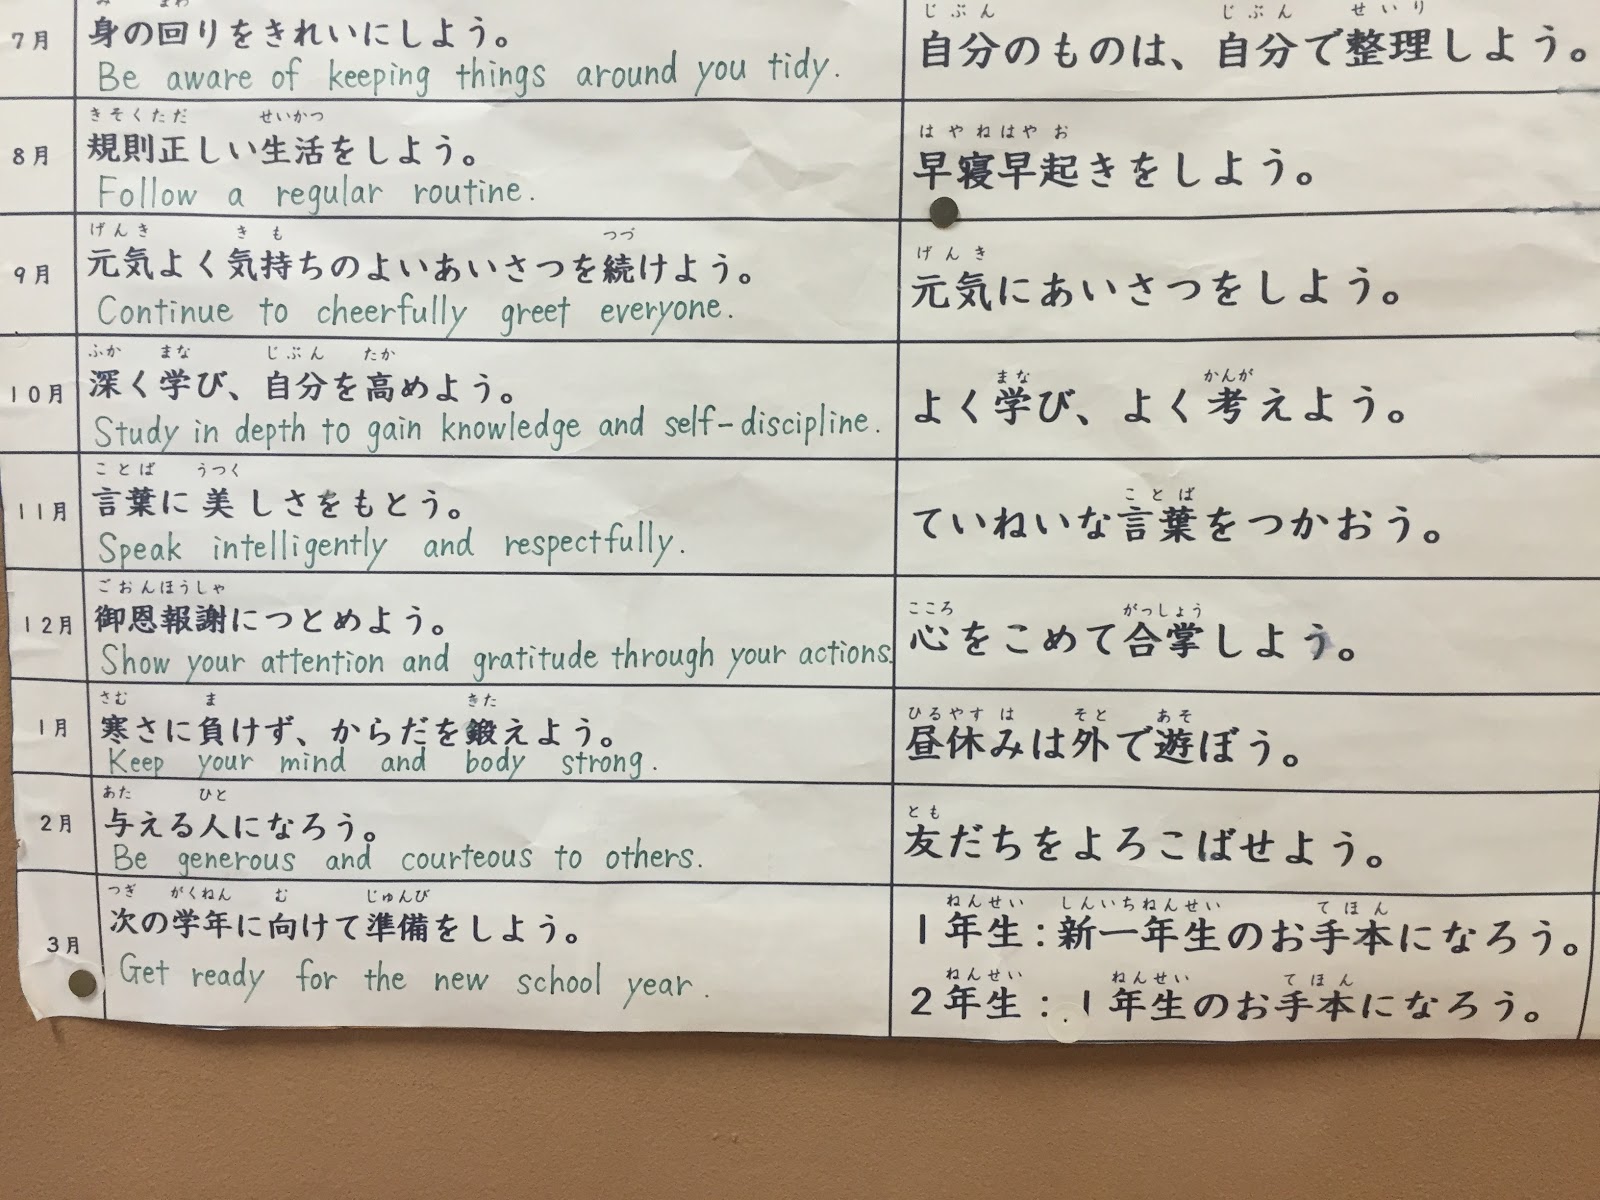 7月
み まわ
身の回りをきれいにしよう。
Be aware of keeping things around you tidy.
じぶん じぶん せいり
自分のものは、自分で整理しよう。
8月
きそくただ せいかつ
規則正しい生活をしよう。
Follow a regular routine.
はやねはや お
早寝早起きをしよう。
9月
げんき き も つづ
元気よく気持ちのよいあいさつを続けよう。
Continue to cheerfully greet everyone.
げんき
元気にあいさつをしよう。
10月
ふか まな じぶん たか
深く学び、自分を高めよう。
Study in depth to gain knowledge and self-discipline.
まな かんが
よく学び、よく考えよう。
11月
ことば うつく
言葉に美しさをもとう。
Speak intelligently and respectfully.
ことば
ていねいな言葉をつかおう。
12月
ごおんほうしゃ
御恩報謝につとめよう。
Show your attention and gratitude through your actions.
こころ がっしょう
心をこめて合掌しよう。
1月
さむ ま きた
寒さに負けず、からだを鍛えよう。
Keep your mind and body strong.
ひるやす は そと あそ
昼休みは外で遊ぼう。
2月
あた ひと
与える人になろう。
Be generous and courteous to others.
とも
友だちをよろこばせよう。
3月
つぎ がくねん む じゅんび
次の学年に向けて準備をしよう。
Get ready for the new school year.
ねんせい しんいちねんせい てほん
1年生:新一年生のお手本になろう。
ねんせい ねんせい てほん
2年生:1年生のお手本になろう。